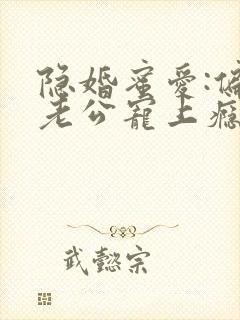 隐婚蜜爱:偏
老公宠上瘾
武懿宗